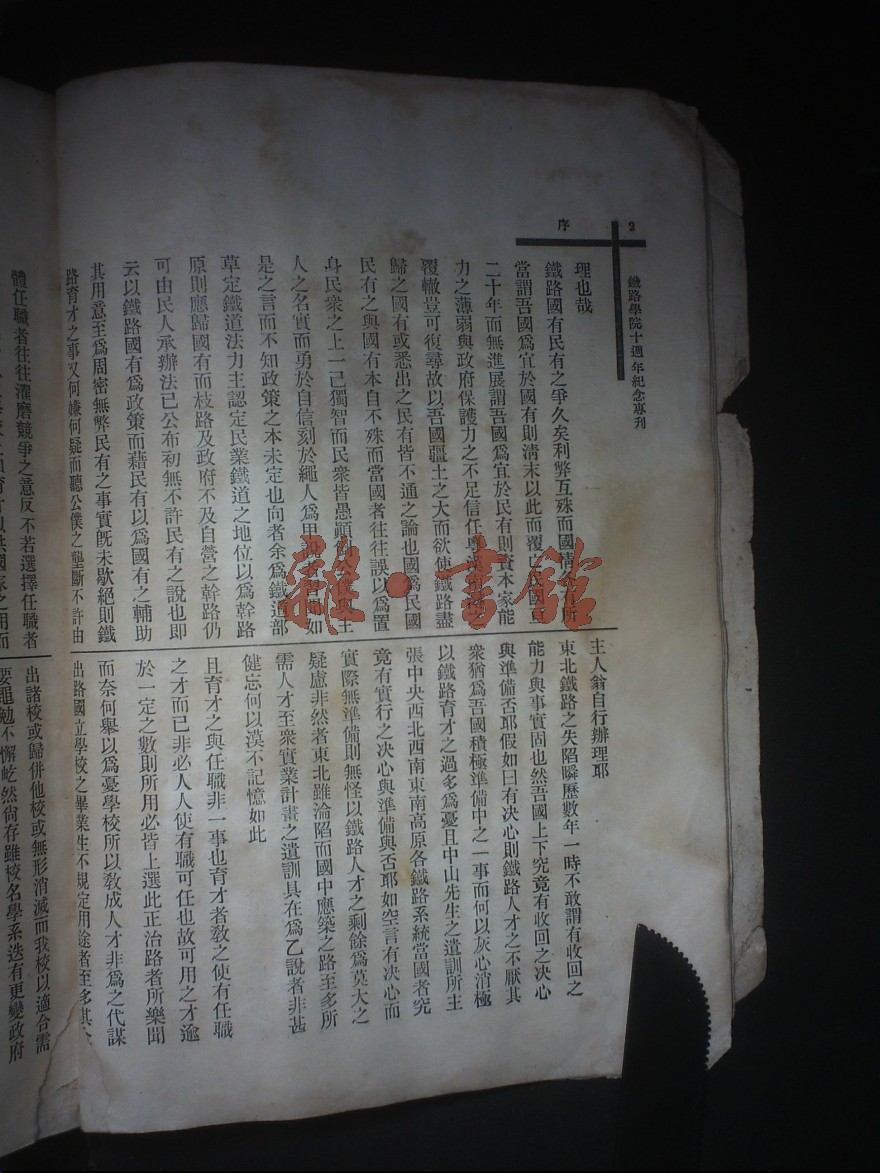 2
序
鐵路學院十週年紀念專刊
理也哉
鐵路國有民有之爭久矣利弊互殊而國情各有所
當謂吾國爲宜於國有則淸末以此而覆亡民國且
二十年而無進展謂吾國爲宜於民有則資本家能
力之薄弱與政府保護力之不足信任
覆轍豈可復尋故以吾國疆土之大而欲使鐵路盡
歸之國有或悉出之民有皆不通之論也國爲民國
民有之與國有本自不殊而當國者往往誤以爲置
身民衆之上一己獨智而民衆皆愚顚
人之名實而勇於自信刻於繩人爲甲說者習聞如
是之言而不知政策之本未定也向者余爲鐵道部
草定鐵道法力主認定民業鐵道之地位以爲幹路
原則應歸國有而枝路及政府不及自營之幹路仍
可由民人承辦法已公布初無不許民有之說也即
云以鐵路國有爲政策而藉民有以爲國有之輔助
其用意至爲周密無弊民有之事實旣未歇絕則鐵
路育才之事又何嫌何疑而聽公僕之壟斷不許由
主人翁自行辦理耶
東北鐵路之失陷瞬歷數年一時不敢謂有收回之
能力與事實固也然吾國上下究竟有收回之決心
與準備否耶假如曰有決心則鐵路人才之不厭其
衆猶爲吾國積極準備中之一事而何以灰心消極
以鐵路育才之過多爲憂且中山先生之遺訓所主
張中央西北西南東南高原各鐵路系統當國者究
竟有實行之決心與準備與否耶如空言有決心而
實際無準備則無怪以鐵路人才之剩餘爲莫大之
疑慮非然者東北雖淪陷而國中應築之路至多所
需人才至衆實業計畫之遺訓具在爲乙說者非甚
健忘何以漠不記憶如此
且育才之與任職非一事也育才者敎之使有任職
之才而已非必人人使有職可任也故可用之才逾
於一定之數則所用必皆上選此正治路者所樂聞
而奈何舉以爲憂學校所以敎成人才非爲之代謀
出路國立學校之畢業生不規定用途者至多其
體任職者往往濯磨競爭之意反不若選擇任職者
出諸校或歸併他校或無形消滅而我校以適合需
要黽勉不懈屹然尙存雖校名學系迭有更變政府
雜·書館